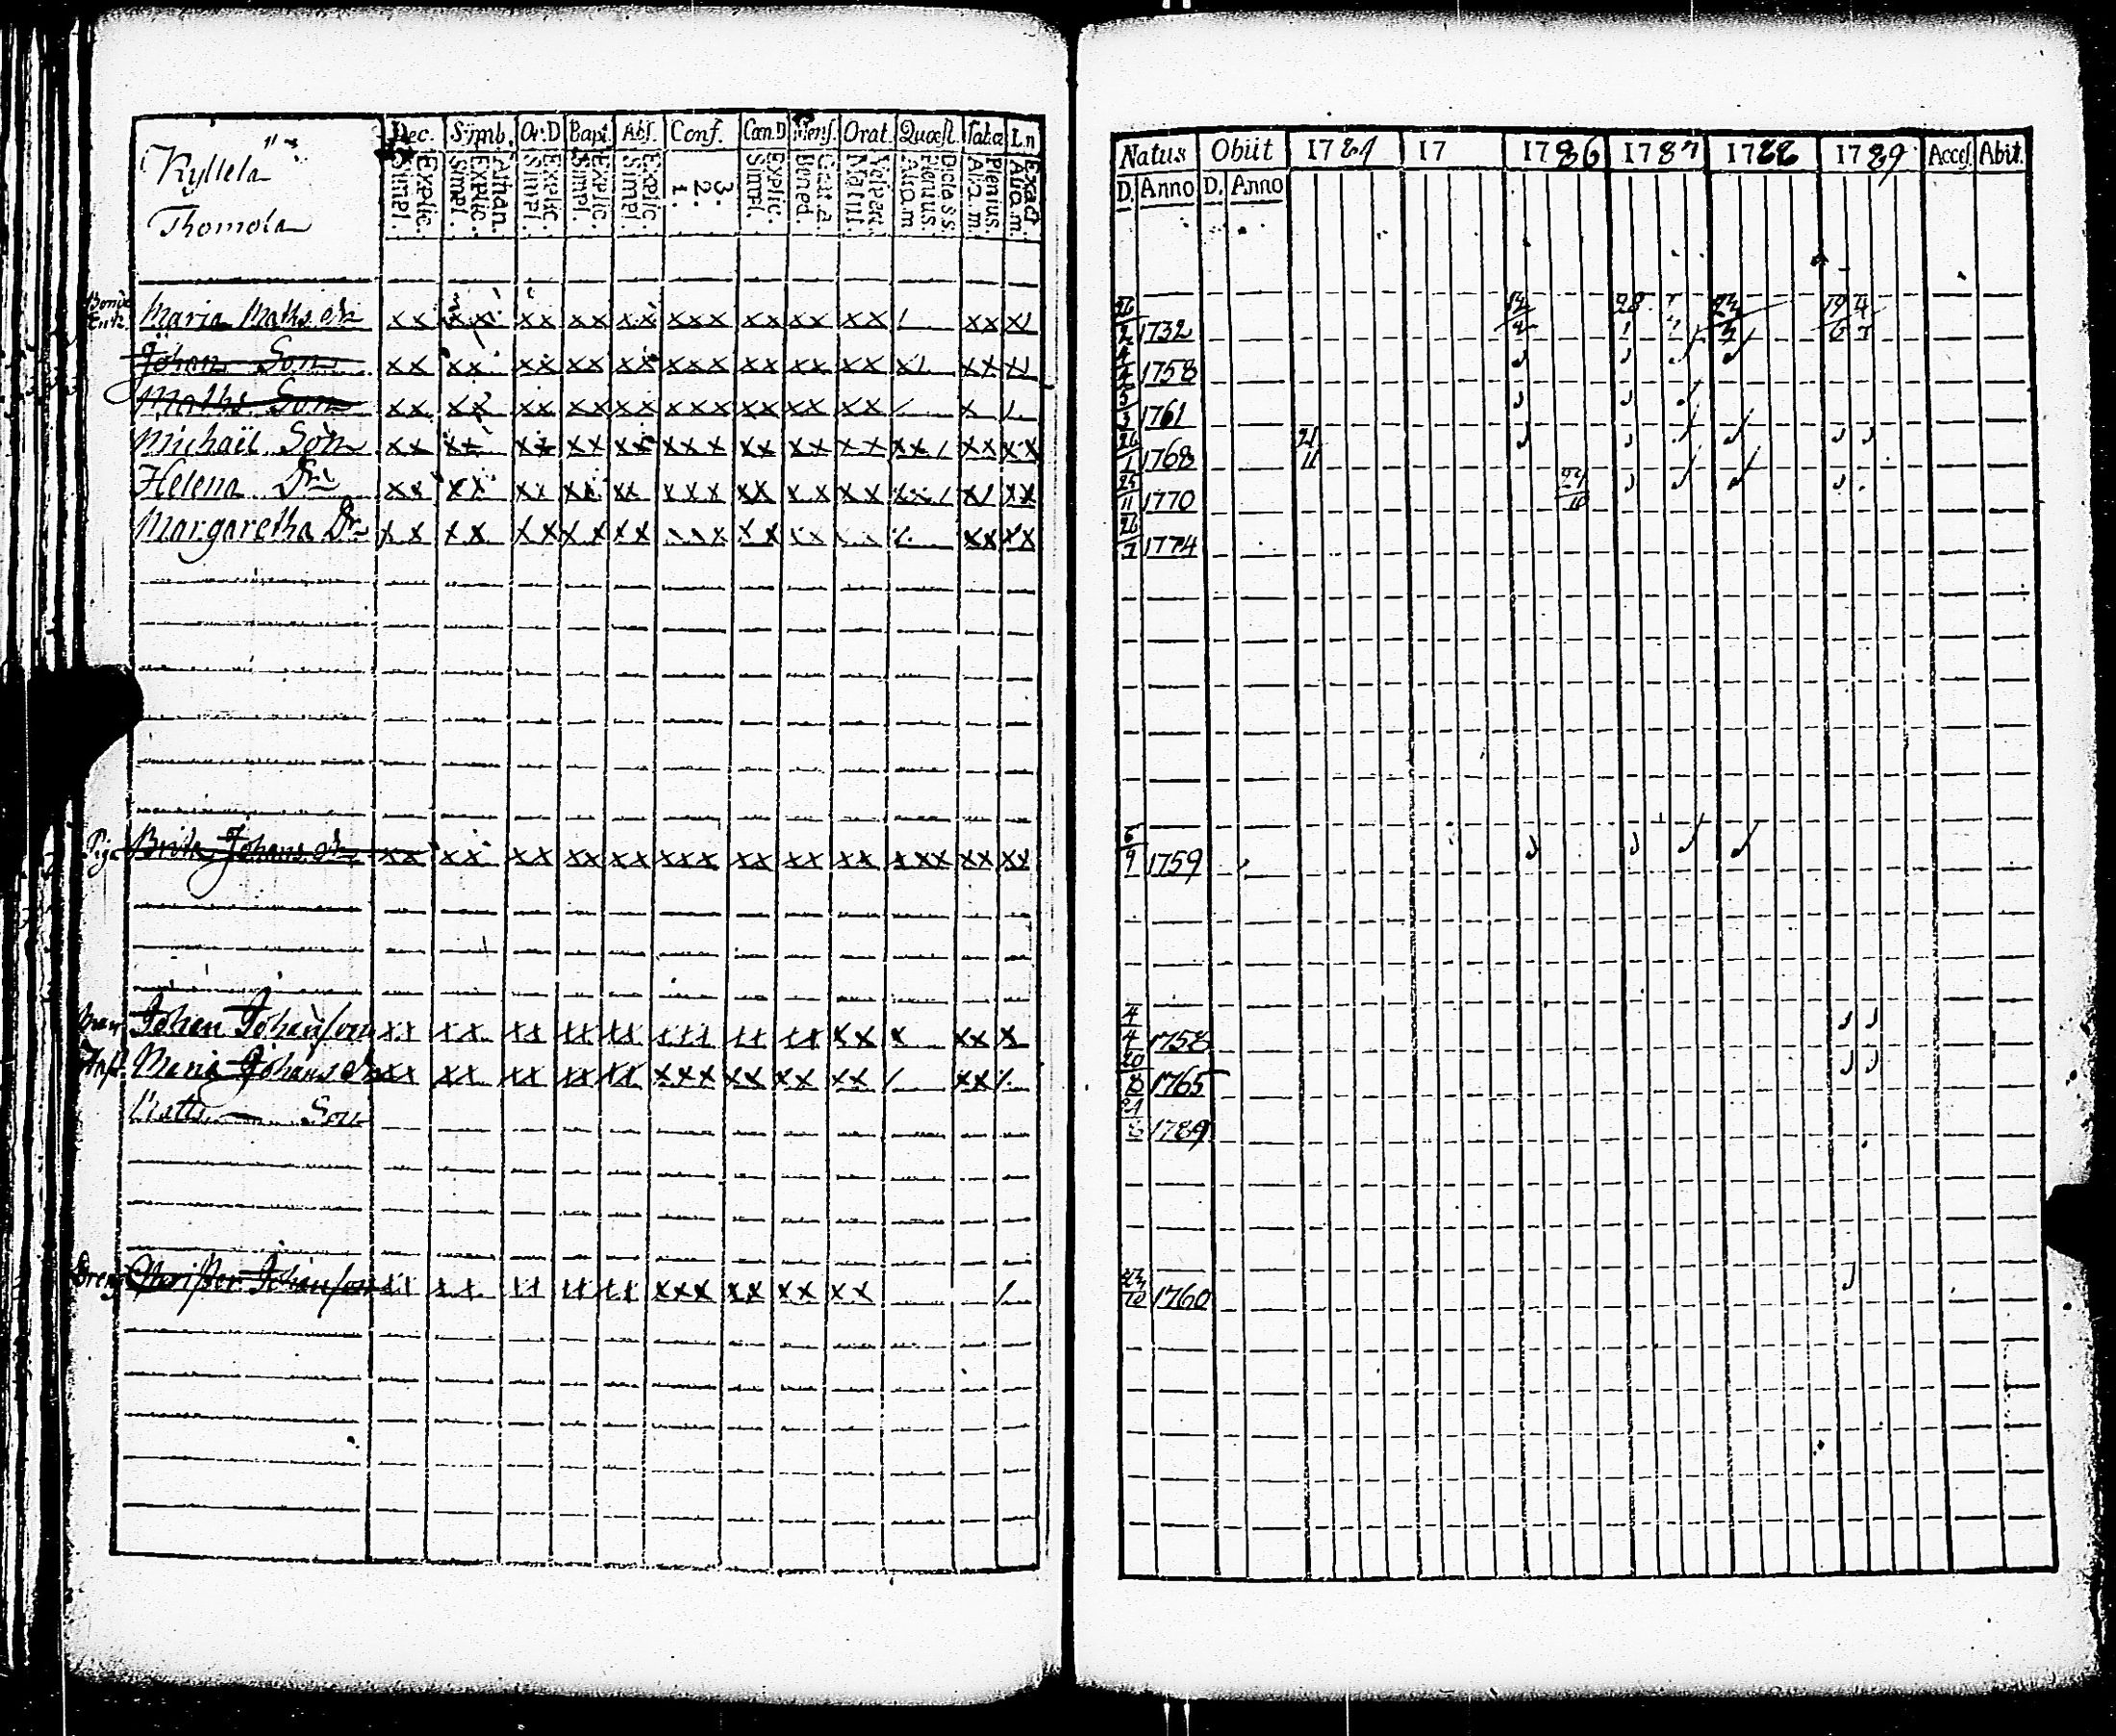 Kyllela
Thomola
Dec. Symb. Or:D Bapt. Abs. Conf. Can.D Mens. Orat. Quæst. Taba Ln
Simpl. Explic. Simpl. Explic. Athan. Simpl. Explic. Simpl. Explic. Simpl. Explic. 1. 2. 3. Simpl. Explic. Bened. Grat.a. Mat.III. Vesper. Aliq.m Plenius. Dictass. Aliq.m. Plenius. Aliq.m. Exact
Natus Obiit 1784 17 1786 1787 1788 1789 Accef. Abit.
D. Anno D. Anno
Bonde Enk. Maria Maths dr xx xx xx xx xx xxx xx xx xx / xx x/ 26/2 1732
Johan Son xx xx xx xx xx xxx xx xx xx x/ xx x/ 4/4 1758
Maths Son xx xx xx xx xx xxx xx xx xx / x / 5/3 1761
Michaël Son xx xx xx xx xx xxx xx xx xx xx/ xx xx 26/1 1768 21/11
Helena Dr xx xx xx xx xx xxx xx xx xx xx/ x/ xx 25/11 1770 24/10
Margaretha Dr xx xx xx xx xx xxx xx xx xx / xx xx 26/7 1774
Pig. Brita Johans dr xx xx xx xx xx xxx xx xx xx xxx xx xx 6/9 1759
Johan Johansson xx xx xx xx xx xxx xx xx xx x xx x 4/4 1758
Maria Johans dr xx xx xx xx xx xxx xx xx xx / xx / 1765
Matts Son 1789
Dreng Christer Johansson xx xx xx xx xx xxx xx xx xx / 1760